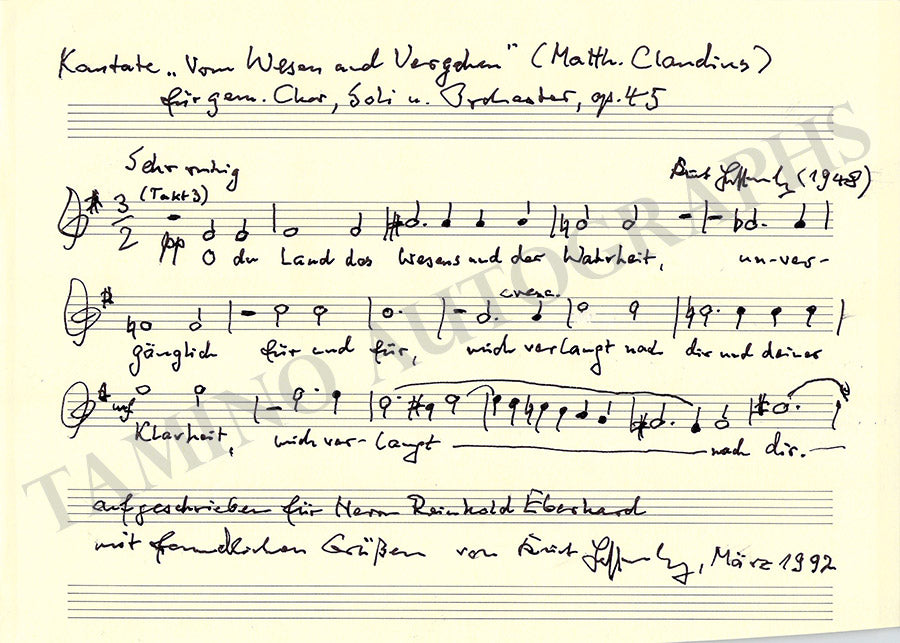 Kantate „Vom Wesen und Vergehen" (Matth. Claudius)
für gem. Chor, Soli u. Orchester, op. 45
Sehr ruhig
Kurt Hessenberg (1948)
(Takt 3)
3
2
pp
O du Land des Wesens und der Wahrheit, un-ver-
cresc.
gänglich für und für, mich verlangt nach dir und deiner
mf
Klarheit, mich ver-langt nach dir.
aufgeschrieben für Herrn Reinhold Eberhard
mit freundlichen Grüßen von Kurt Hessenberg, März 1992
TAMINO AUTOGRAPHS